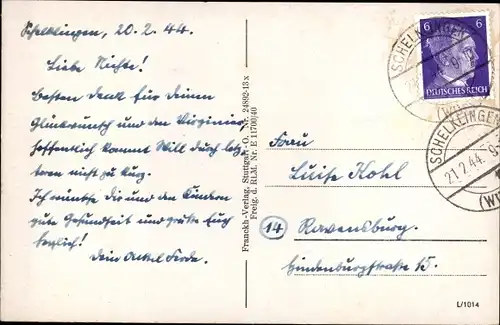 Schelklingen, 20.2.44.
Liebe Nichte!
Besten Dank für Deinen
Glückwunsch und den Virginier
hoffentlich kommt Willi durch
nicht zu kurz.
Ich wünsche Dir und den Kindern
gute Gesundheit und grüße Euch
herzlich!
Dein Onkel
Franckh-Verlag, Stuttgart-O. Nr. 24892-13 x
Freig. d. RLM. Nr. E 11700/40
6 6
DEUTSCHES REICH
SCHELKLINGEN
SCHELKLINGEN
21.2.44.
Frau
Luise Kohl
14 Ravensburg.
Hindenburgstraße 15.
L/1014